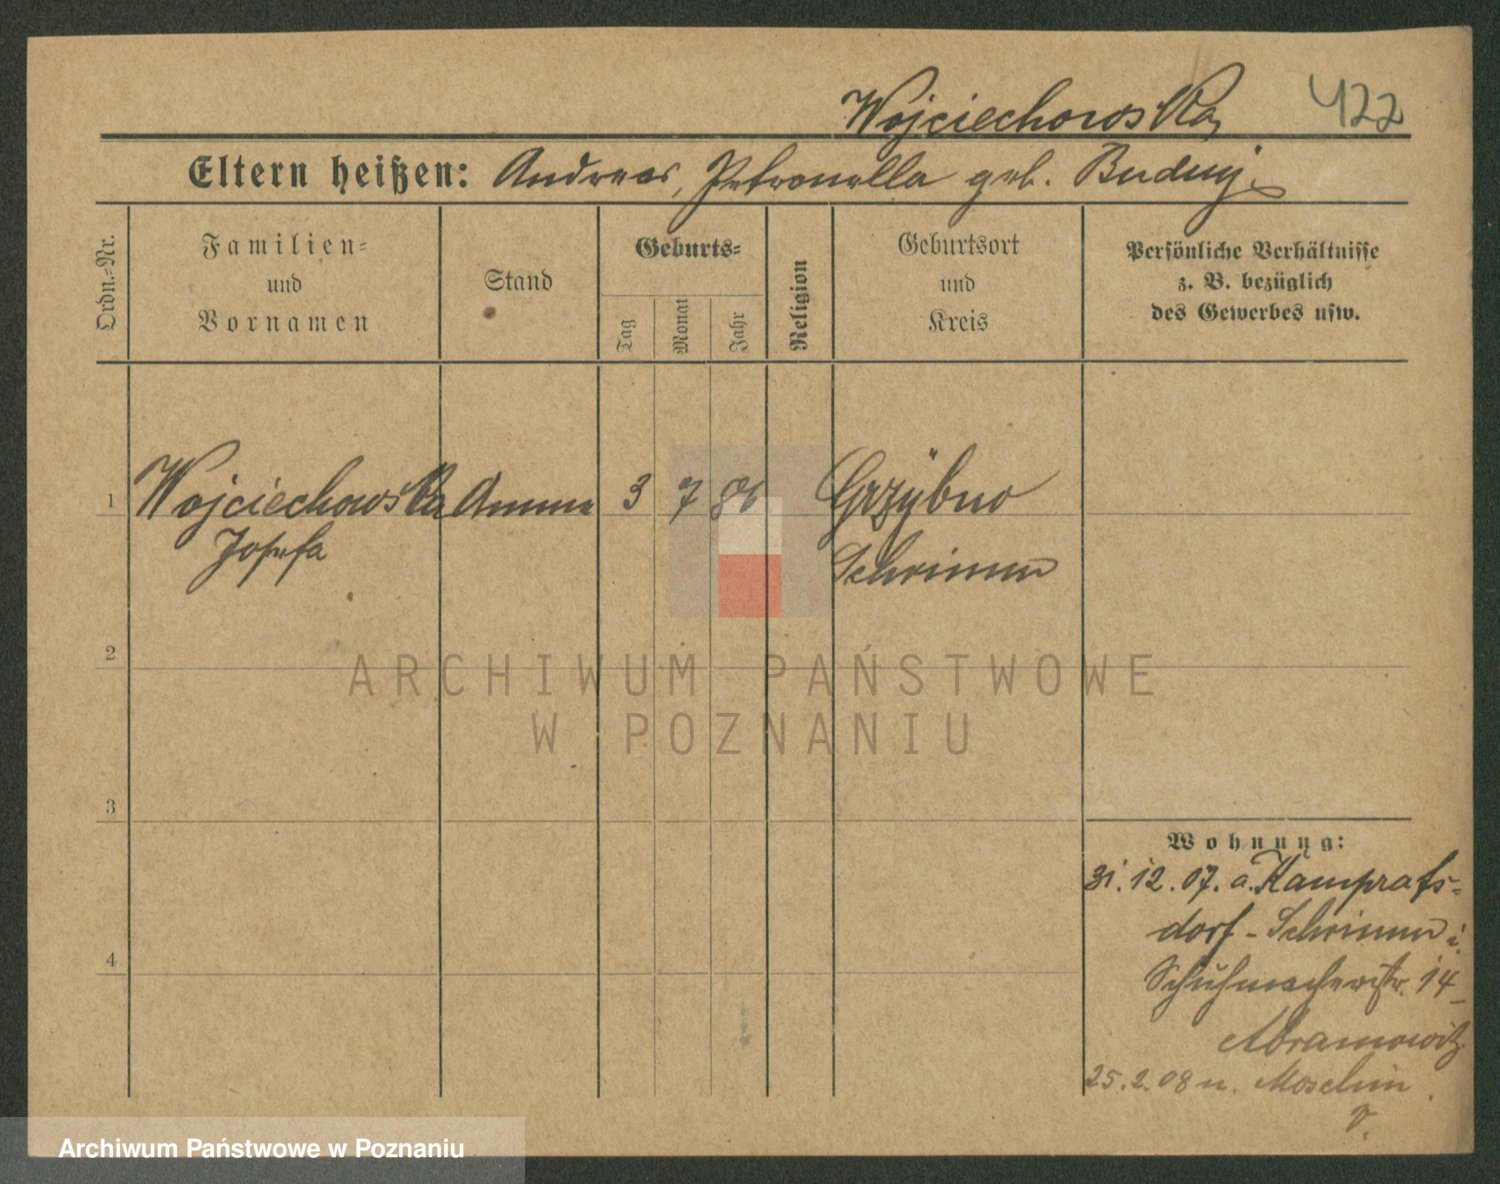 Wojciechowska
422
Eltern heißen: Andreas, Petronella geb. Buduj.
Ordn.-Nr.
Familien-
und
Vornamen
Stand
Geburts-
Tag
Monat
Jahr
Religion
Geburtsort
und
Kreis
Persönliche Verhältnisse
z. B. bezüglich
des Gewerbes usw.
1
Wojciechowska Amme 3 7 86 Grzybno
Josefa
Schrimm
2
ARCHIWUM PAŃSTWOWE
W POZNANIU
3
4
Wohnung:
31.12.07. a.
dorf - Schrimm i.
Schuhmacherstr. 14
Abramowitz
25.2.08 n. Moschin
Archiwum Państwowe w Poznaniu